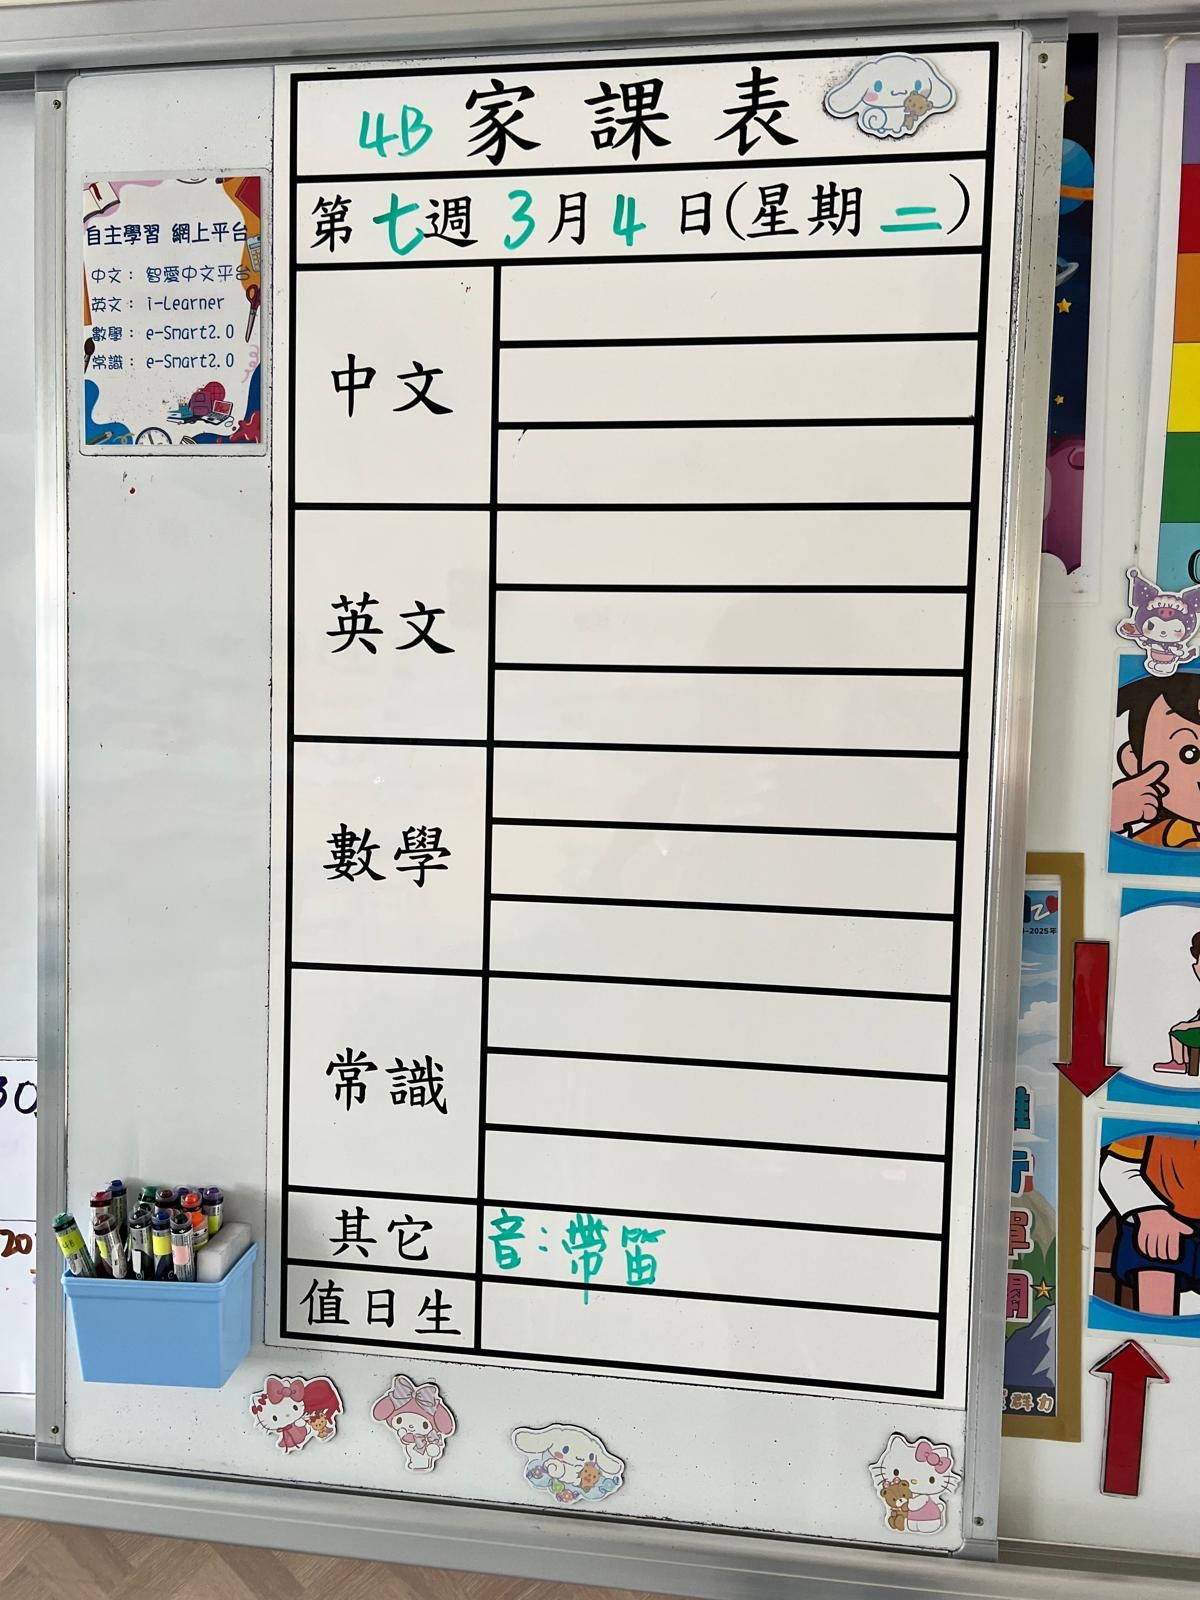 4B 家課表
第七週 3月4日(星期二)
自主學習 網上平台
中文： 智愛中文平台
英文： i-Learner
數學： e-Smart2.0
常識： e-Smart2.0
中文
英文
數學
常識
其它 音：帶笛
值日生
4B
30
20
-2025年
單
群力